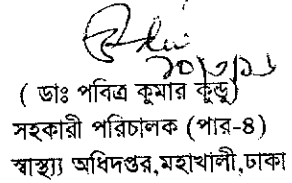 ( ডাঃ পবিত্র কুমার কুন্ডু)
সহকারী পরিচালক (পার-৪)
স্বাস্থ্য অধিদপ্তর,মহাখালী,ঢাকা